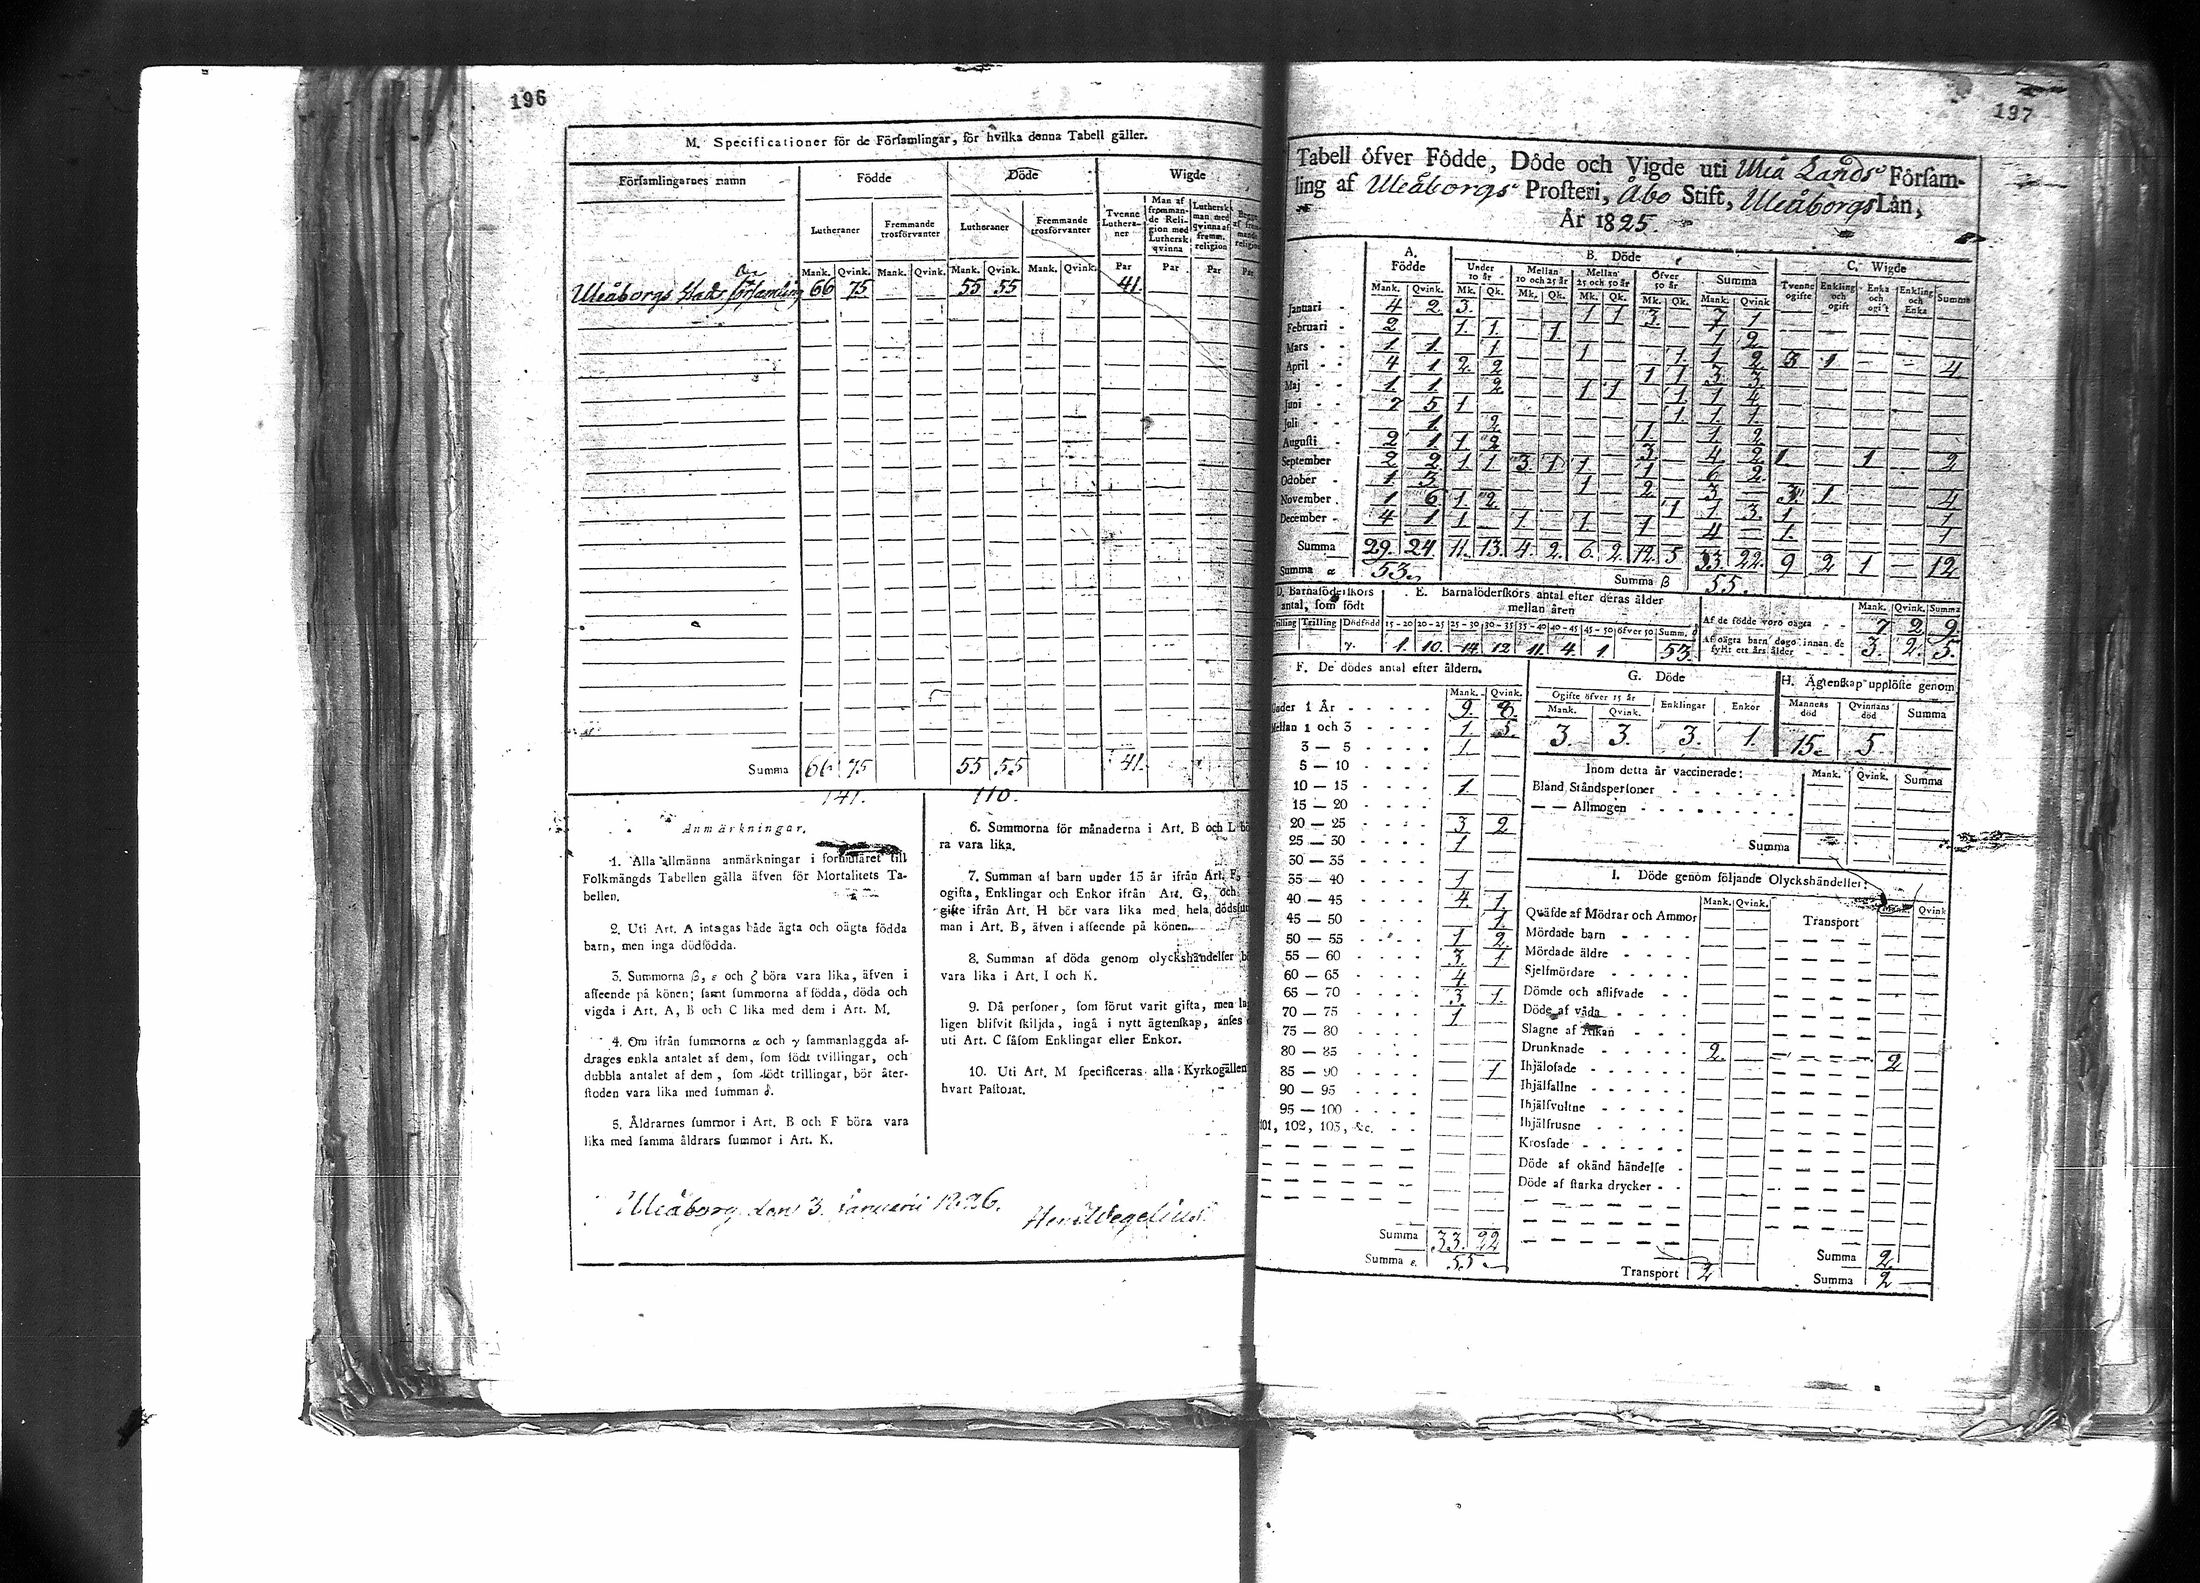 196
M. Specificationer för de Församlingar, för hvilka denna Tabell gäller.
Församlingarnes namn Födde Döde Wigde
Lutheraner Fremmande trosförvanter Lutheraner Fremmande trosförvanter Tvenne Lutheraner Man af fremmande Religion med Luthersk qvinna Luthersk man med qvinna af fremm. religion
Mank. Qvink. Mank. Qvink. Mank. Qvink. Mank. Qvink. Par Par Par Par
Uleåborgs Stads församling 66 75 55 55 41.
Summa 66 75 55 55 41.
141. 110.
Anmärkningar.
1. Alla allmänna anmärkningar i formuläret till
Folkmängds Tabellen gälla äfven för Mortalitets Ta-
bellen.
2. Uti Art. A intagas både ägta och oägta födda
barn, men inga dödfödda.
3. Summorna β, ε och ζ böra vara lika, äfven i
afseende på könen; samt summorna af födda, döda och
vigda i Art. A, B och C lika med dem i Art. M.
4. Om ifrån summorna α och γ sammanlaggda af-
drages enkla antalet af dem, som födt tvillingar, och
dubbla antalet af dem, som födt trillingar, bör åter-
stoden vara lika med summan δ.
5. Åldrarnes summor i Art. B och F böra vara
lika med samma åldrars summor i Art. K.
6. Summorna för månaderna i Art. B och L bö
ra vara lika.
7. Summan af barn under 15 år ifrån Art. F,
ogifta, Enklingar och Enkor ifrån Art. G, och
gifte ifrån Art. H bör vara lika med hela dödssum
man i Art. B, äfven i afseende på könen.
8. Summan af döda genom olyckshändelser b
vara lika i Art. I och K.
9. Då personer, som förut varit gifta, men la
ligen blifvit skiljda, ingå i nytt ägtenskap, anses
uti Art. C såsom Enklingar eller Enkor.
10. Uti Art. M specificeras alla Kyrkogällen
hvart Pastorat.
Uleåborg den 3 januarii 1826. Wegelius
197
Tabell öfver Födde, Döde och Vigde uti Uleå Lands Församling
ling af Uleåborgs Prosteri, Åbo Stift, Uleåborgs Län,
År 1825.
A. Födde B. Döde C. Wigde
Under 10 år Mellan 10 och 25 år Mellan 25 och 50 år Öfver 50 år Summa Tvenne ogifte Enkling och ogift Enka och ogift Enkling och Enka Summa
Mank. Qvink. Mk. Qk. Mk. Qk. Mk. Qk. Mk. Qk. Mank. Qvink
Januari 4 2 3 1 1 3 7 1
Februari 2 1 1 1 1 2
Mars 1 1 1 1 1 1 2 3 1 4
April 4 1 2 2 1 1 3 3
Maj 1 1 2 1 1 1 1 4
Juni 2 5 1 1 1 1
Juli 1 2 1 1 2
Augusti 2 1 1 2 3 4 2
September 2 2 1 1 3 1 1 1 6 2 1 1 2
October 1 3 1 2 3
November 1 6 1 2 1 1 3
December 4 1 1 1 1 1 4
Summa 29. 24 11. 13. 4. 2. 6. 2. 12. 5 33 22. 9 2 1 12
Summa α 53. Summa β 55.
D. Barnaföderskors antal, som födt
Tvilling Trilling Dödfödd
γ.
E. Barnaföderskors antal efter deras ålder
mellan åren
15-20 20-25 25-30 30-35 35-40 40-45 45-50 öfver 50 Summ. δ
1. 10. 14 12 11. 4. 1 53
Mank. Qvink. Summa
Af de födde voro oägta 7 2 9.
Af oägta barn dogo innan de
fyllt ett års ålder 3. 2. 5.
F. De dödes antal efter åldern.
Mank. Qvink.
Under 1 År 9. 8.
Mellan 1 och 3 1. 5.
3 — 5 1
5 — 10
10 — 15 1
15 — 20
20 — 25 3 2
25 — 30 1
30 — 35
35 — 40 1
40 — 45 4. 1.
45 — 50 1.
50 — 55 1 2
55 — 60 3. 1
60 — 65 4
65 — 70 3. 1.
70 — 75 1
75 — 80
80 — 85
85 — 90 1
90 — 95
95 — 100
101, 102, 103, &c.
Summa 33. 22
Summa ε. 55.
G. Döde
Ogifte öfver 15 år Enklingar Enkor
Mank. Qvink.
3. 3. 3. 1.
H. Ägtenskap upplöste genom
Mannens död Qvinnans död Summa
15. 5
Inom detta år vaccinerade: Mank. Qvink. Summa
Bland Ståndspersoner
— — Allmogen
Summa
I. Döde genom följande Olyckshändelser:
Mank. Qvink. Transport Mank. Qvink
Quäfde af Mödrar och Ammor
Mördade barn
Mördade äldre
Sjelfmördare
Dömde och aflifvade
Döde af våda
Slagne af Åskan
Drunknade 2. 2
Ihjälosade
Ihjälfallne
Ihjälsvultne
Ihjälfrusne
Krossade
Döde af okänd händelse
Döde af starka drycker
Summa 2
Transport 2 Summa 2